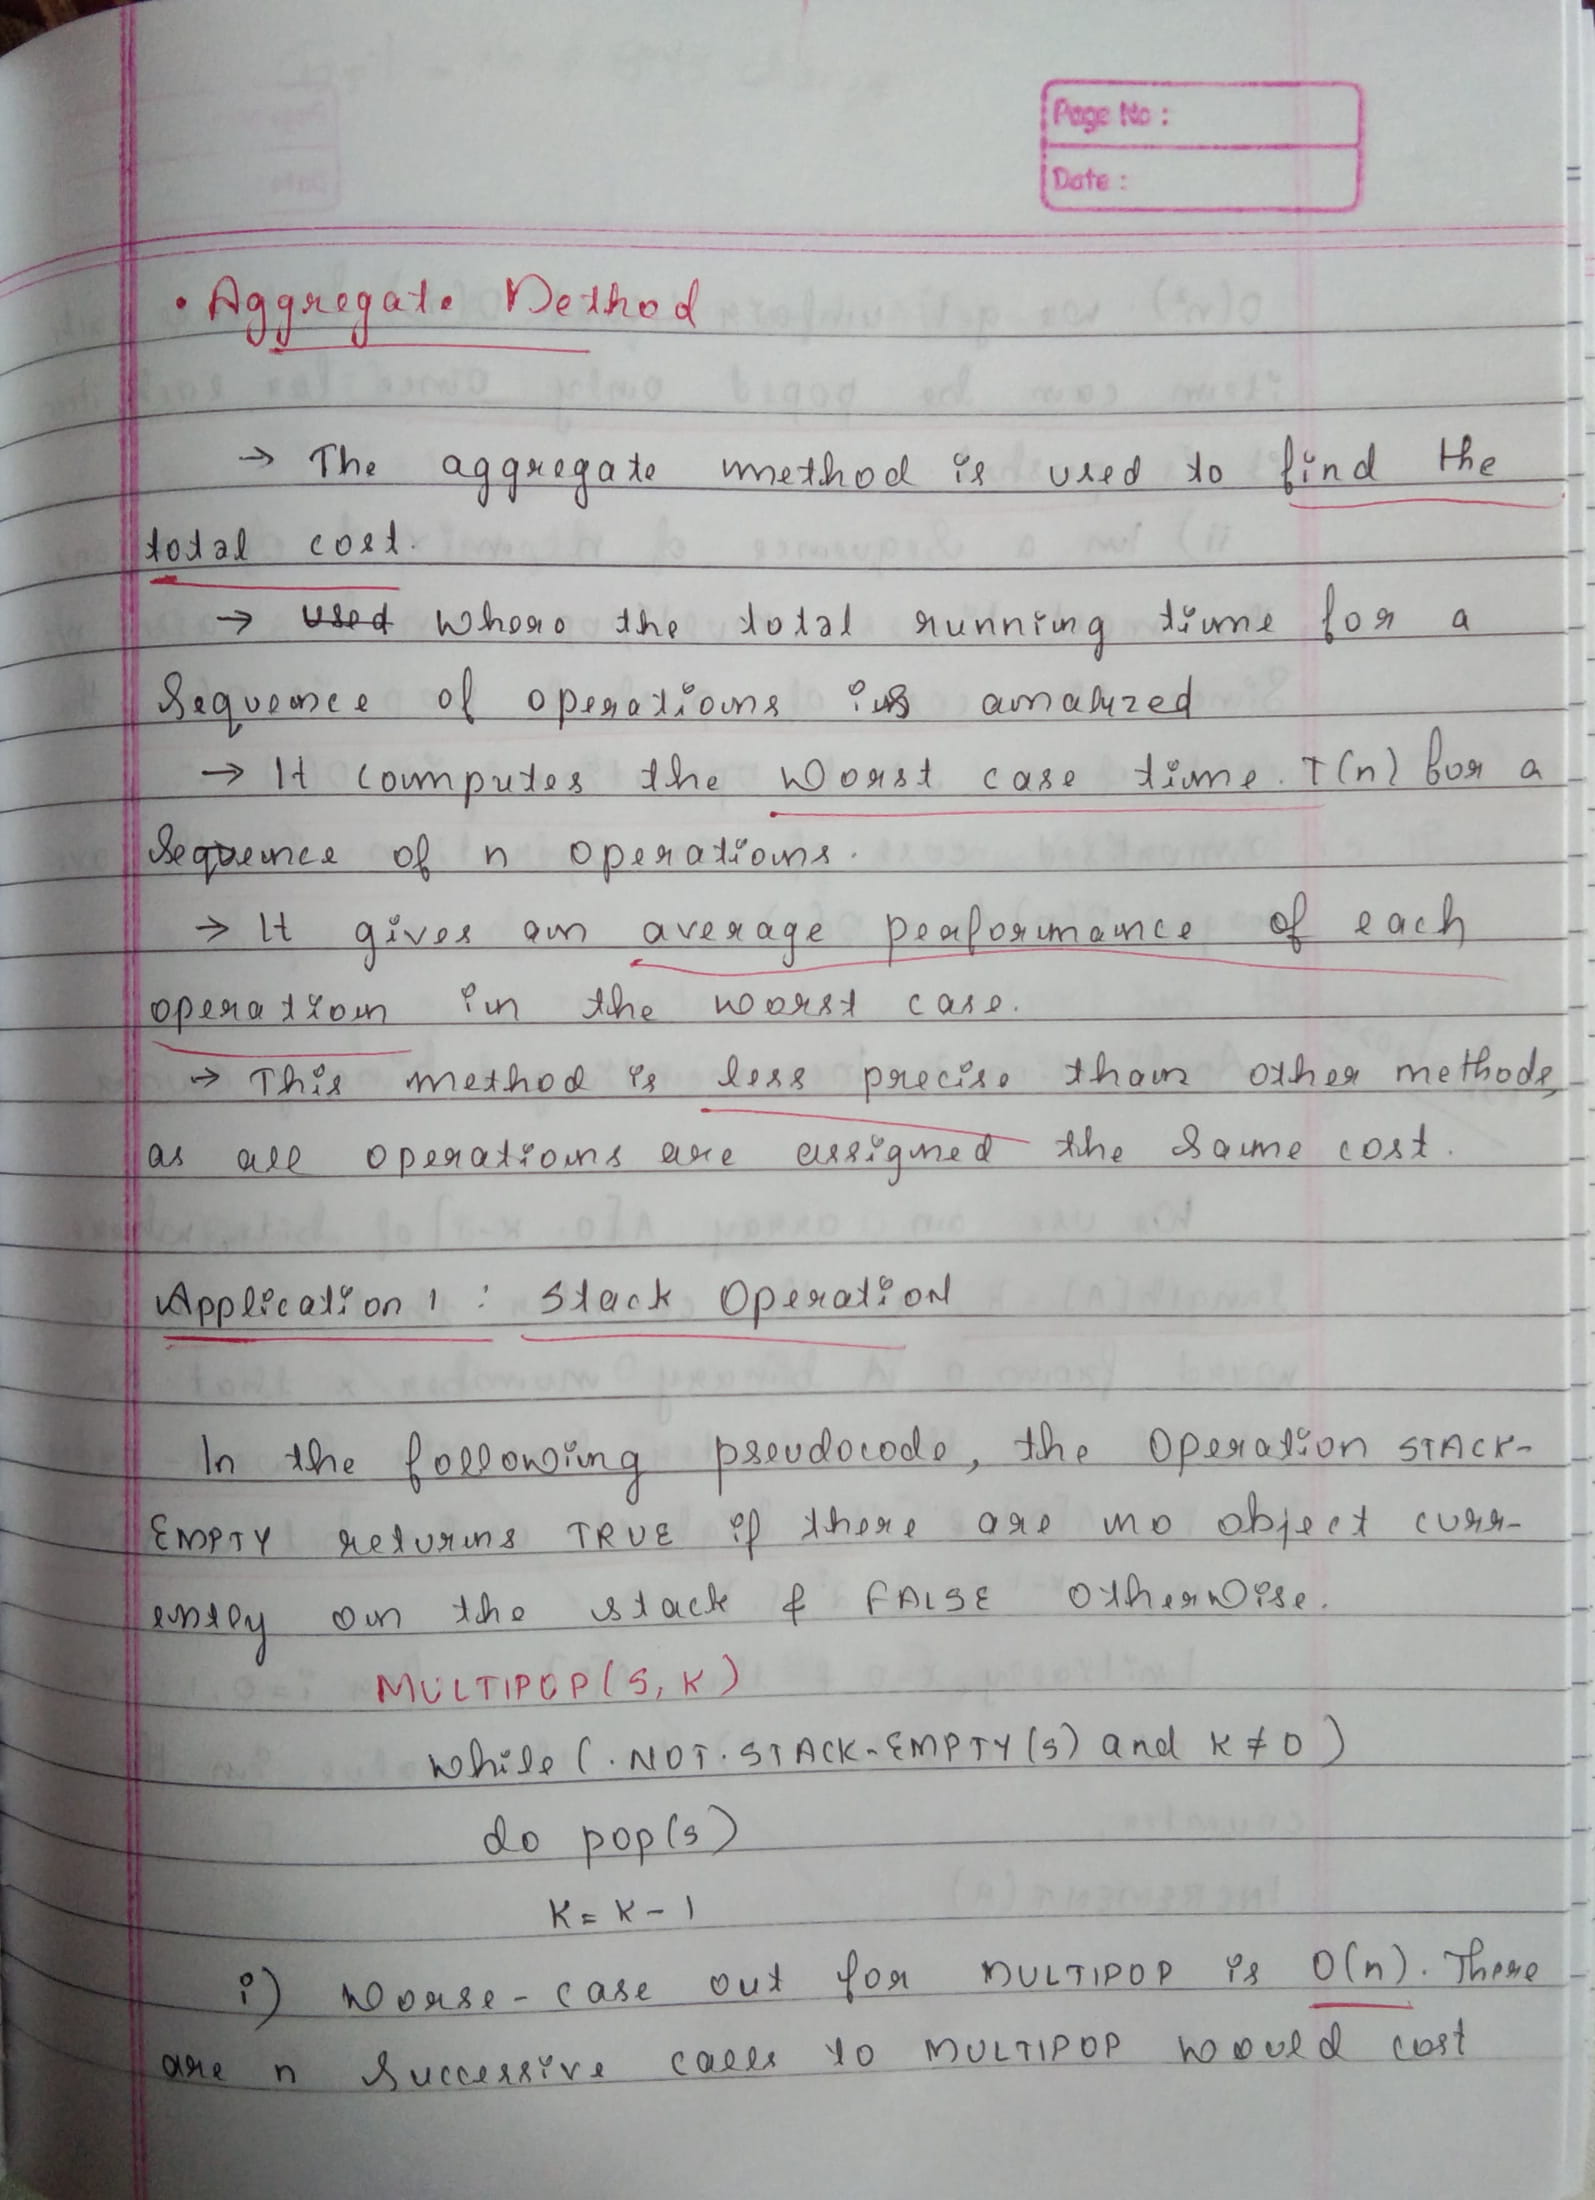 Page No :
Date :
• Aggregate Method
→ The aggregate method is used to find the
total cost.
→ used where the total running time for a
sequence of operations is analyzed
→ It computes the worst case time. T(n) for a
sequence of n operations.
→ It gives an average performance of each
operation in the worst case.
→ This method is less precise than other methods,
as all operations are assigned the same cost.
Application 1 : Stack Operation
In the following pseudocode, the operation STACK-
EMPTY returns TRUE if there are no object curr-
ently on the stack & FALSE otherwise.
MULTIPOP(S, K)
while ( .NOT. STACK-EMPTY(S) and K ≠ 0 )
do pop(s)
K = K - 1
i) Worse - case out for MULTIPOP is O(n). There
are n successive calls to MULTIPOP would cost